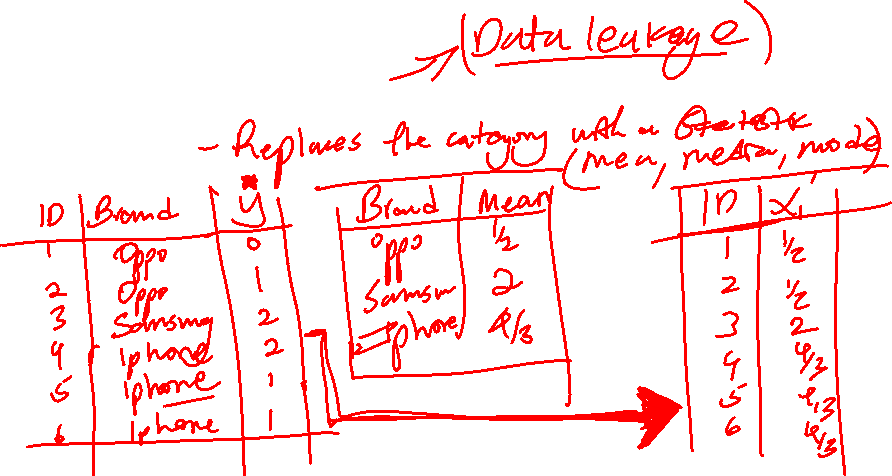 (Data leakage)
- Replaces the category with a Statistic
(mean, media, mode)
ID Brand y
1 Oppo 0
2 Oppo 1
3 Samsung 2
4 Iphone 2
5 Iphone 1
6 Iphone 1
Brand Mean
Oppo 1/2
Samsun 2
Iphone 4/3
ID X1
1 1/2
2 1/2
3 2
4 4/3
5 4/3
6 4/3